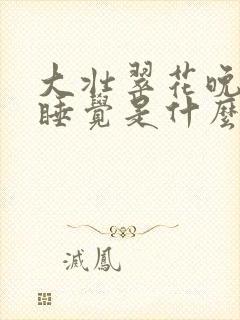 大壯翠花晚
睡覺是什麼
滅鳳